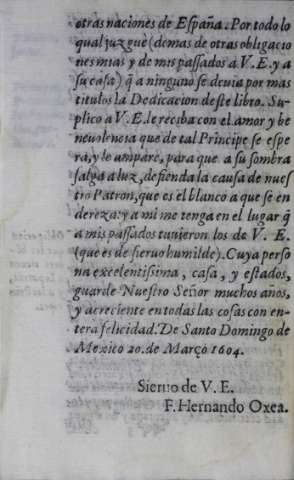 otras naciones de España. Por todo lo
qual juzguè (demas de otras obligacio
nes mias y de mis passados a V.E. y a
su casa) q̃ a ninguno se devia por mas
titulos la Dedicacion deste libro. Su-
plico a V.E. le reciba con el amor y be
nevolencia que de tal Principe se espe
ra, y le ampare, para que a su sombra
salga a luz, defienda la causa de nues
tro Patron, que es el blanco a que se en
dereza: y a mi me tenga en el lugar q̃
a mis passados tuvieron los de V. E.
(que es de siervo humilde). Cuya perso
na excelentissima, casa, y estados,
guarde Nuestro Señor muchos años,
y acreciente en todas las cosas con en-
tera felicidad. De Santo Domingo de
Mexico 20. de Março 1604.
Siervo de V. E.
F. Hernando Oxea.